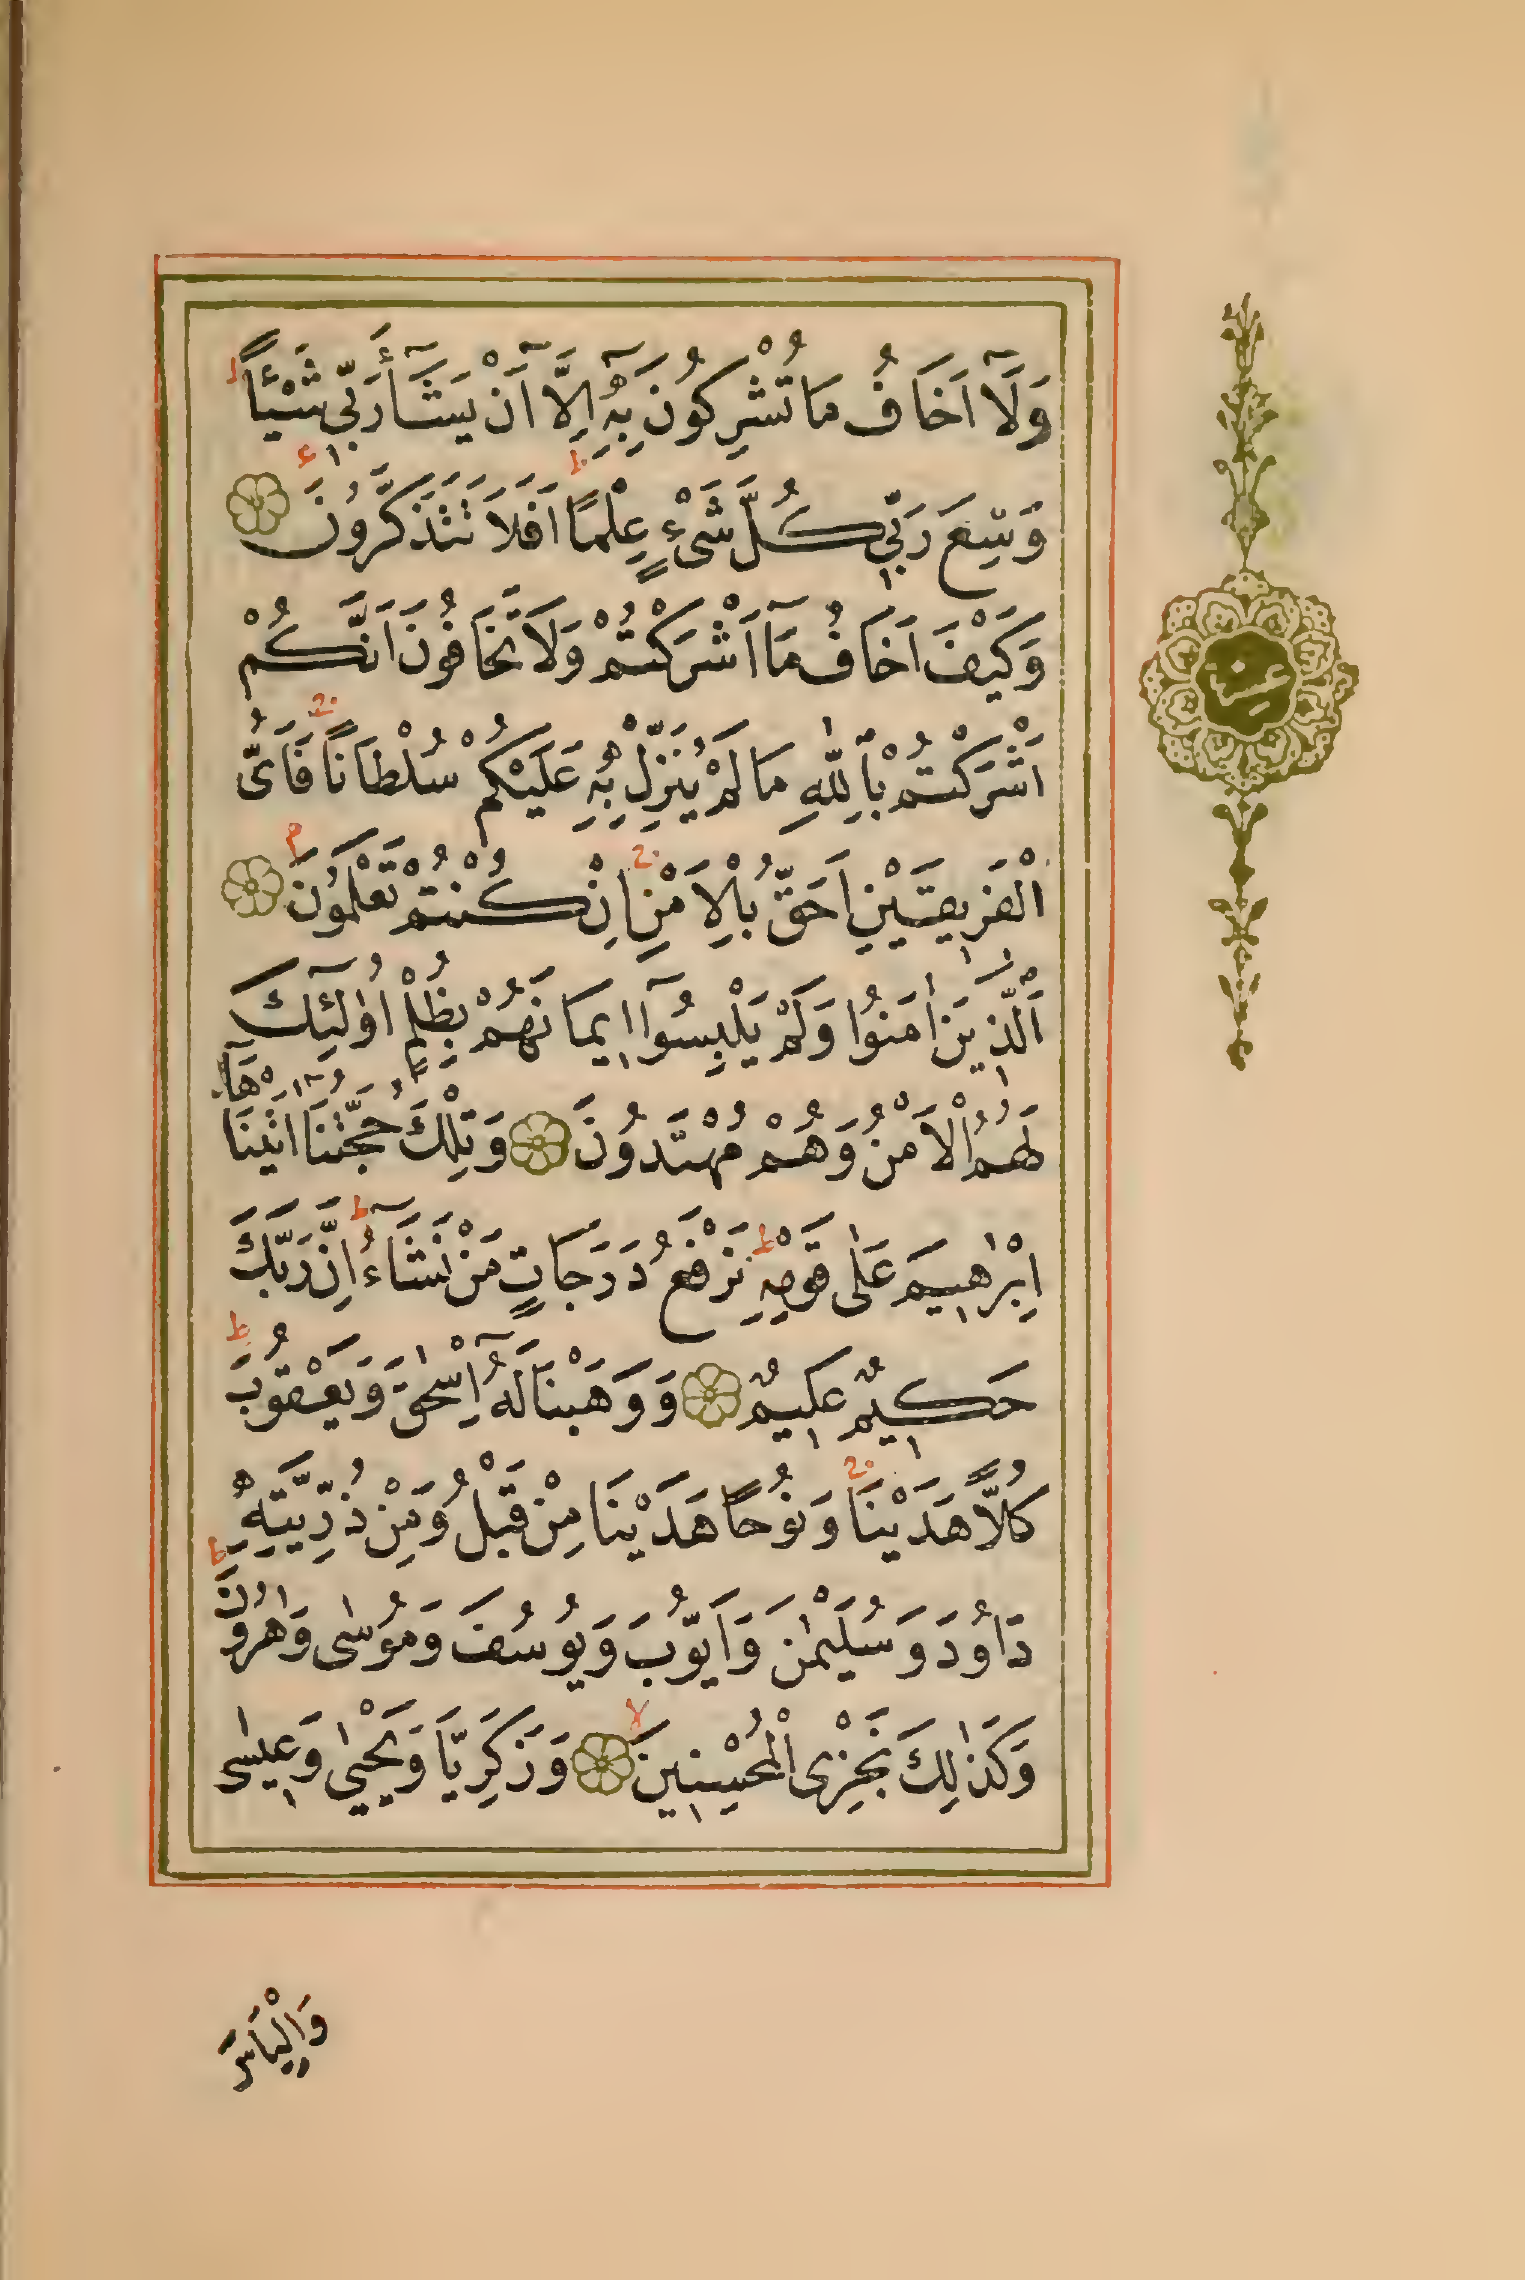 وَلَآ اَخَافُ مَا تُشْرِكُونَ بِهٖٓ اِلَّٓا اَنْ يَشَٓاءَ رَبّ۪ي شَيْـًٔاۜ
وَسِعَ رَبّ۪ي كُلَّ شَیْءٍ عِلْمًاۜ اَفَلَا تَتَذَكَّرُونَ
وَكَيْفَ اَخَافُ مَٓا اَشْرَكْتُمْ وَلَا تَخَافُونَ اَنَّكُمْ
اَشْرَكْتُمْ بِاللّٰهِ مَا لَمْ يُنَزِّلْ بِهٖ عَلَيْكُمْ سُلْطَانًاۜ فَاَیُّ
الْفَر۪يقَيْنِ اَحَقُّ بِالْاَمْنِۚ اِنْ كُنْتُمْ تَعْلَمُونَۘ
اَلَّذ۪ينَ اٰمَنُوا وَلَمْ يَلْبِسُٓوا ا۪يمَانَهُمْ بِظُلْمٍ اُولٰٓئِكَ
لَهُمُ الْاَمْنُ وَهُمْ مُهْتَدُونَ وَتِلْكَ حُجَّتُنَٓا اٰتَيْنَاهَٓا
اِبْرٰه۪يمَ عَلٰى قَوْمِهٖۜ نَرْفَعُ دَرَجَاتٍ مَنْ نَشَٓاءُۜ اِنَّ رَبَّكَ
حَك۪يمٌ عَل۪يمٌ وَوَهَبْنَا لَهُٓ اِسْحٰقَ وَيَعْقُوبَۜ
كُلًّا هَدَيْنَاۚ وَنُوحًا هَدَيْنَا مِنْ قَبْلُ وَمِنْ ذُرِّيَّتِهٖ
دَاوُدَ وَسُلَيْمٰنَ وَاَيُّوبَ وَيُوسُفَ وَمُوسٰى وَهٰرُونَۜ
وَكَذٰلِكَ نَجْزِی الْمُحْسِن۪ينَۙ وَزَكَرِيَّا وَيَحْيٰى وَع۪يسٰى
وَاِلْيَاسَ